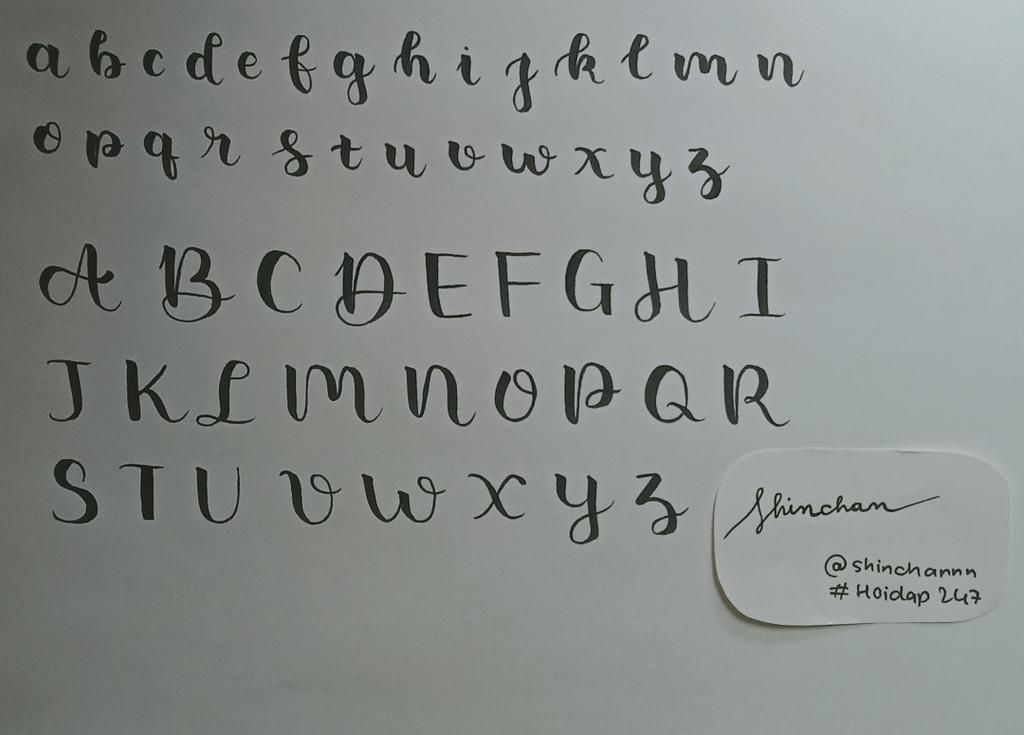 a b c d e f g h i j k l m n
o p q r s t u v w x y z
A B C D E F G H I
J K L M N O P Q R
S T U V W X Y Z
Shinchan
@shinchannn
#Hoidap 247